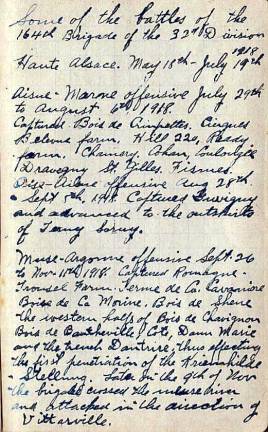 Some of the battles of the
164th Brigade of the 32nd Division
1918
Haute Alsace. May 18th - July 19th
Aisne - Marne offensive July 29th
to August 6th 1918.
Captured Bois de Grimpettes. Cierges
Bellevue farm. Hill 220, Reddy
farm. Chamery. Cohan, Coulonges
Dravegny St. Gilles. Fismes.
Oise - Aisne offensive Aug 28th
- Sept 5th, 1918 Captured Juvigny
and advanced to the outskirts
of Terny Sorny.
Muse-Argonne offensive Sept. 26
to Nov 11th 1918. Captured Romagne -
Farm. Ferme de la
Bois de la Morine. Bois de Chene
the western half of Bois de Chavignon
Bois de Bantheville, Cote, Dame Marie
and the trench Dentrire, thus effecting
the first penetration of the Kriemhilde
- Stellung. Late on the 9th of Nov
the brigade crossed the meuse river
and attacked in the direction of
Vittarville.